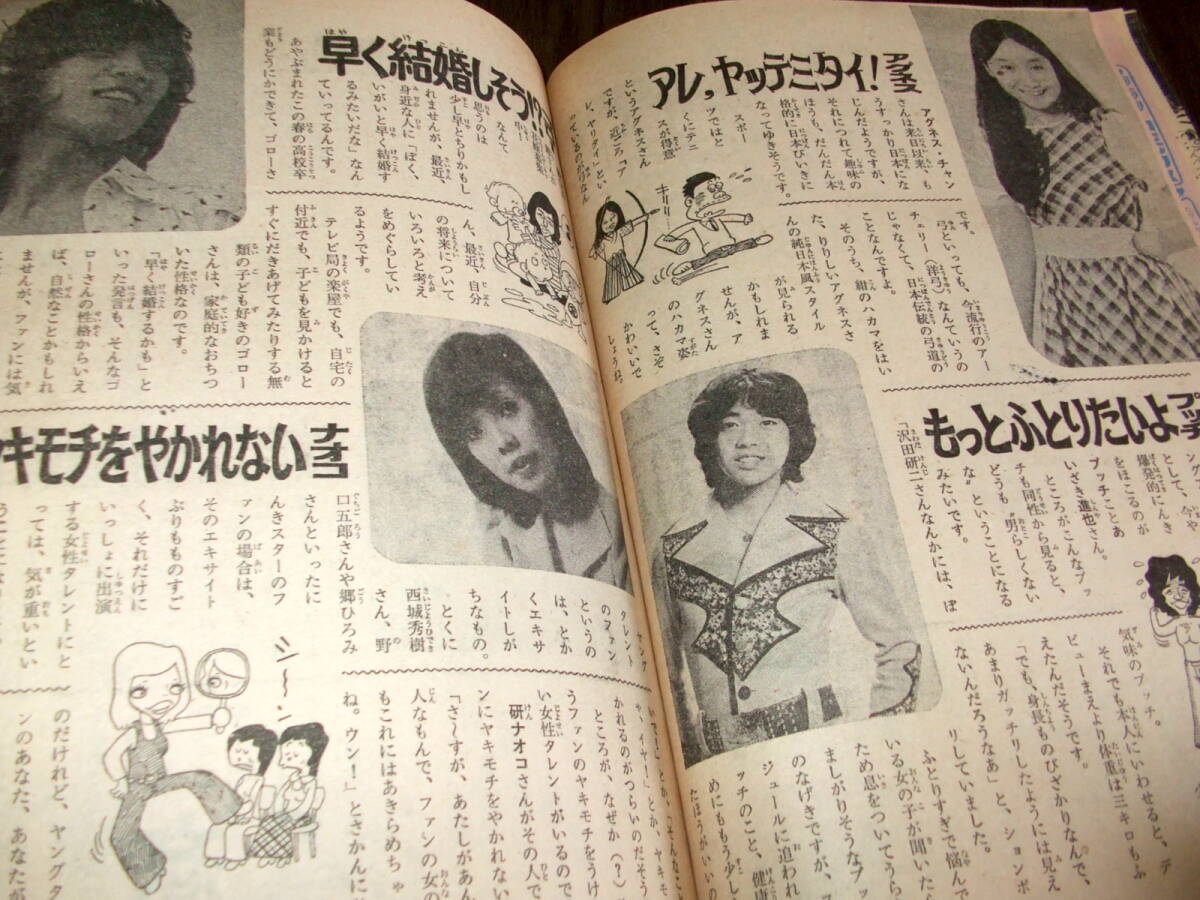 アレ,ヤッテミタイ!
アグネス
アグネス・チャン
さんは来日以来、も
うすっかり日本にな
じんだようですが、
それにつれて趣味の
ほうも、だんだん本
格的に日本びいきに
なってゆきそうです。
スポー
ツではと
くにテニ
スが得意
というアグネスさん
ですが、近ごろ「ア
レ、ヤリタイ」とい
っているのが弓なん
です。
弓といっても、今流行のアー
チェリー(洋弓)なんていうの
じゃなくて、日本伝統の弓道の
ことなんですよ。
そのうち、紺のハカマをはい
た、りりしいアグネスさ
んの純日本風スタイル
が見られる
かもしれま
せんが、ア
グネスさん
のハカマ姿
って、さぞ
かわいいで
しょうね。
キリリ…
もっとふとりたいよ
プッチ
ング
として、今や
爆発的にんき
をほこるのが
プッチことあ
いざき進也さん。
ところがこんなプッ
チも同性から見ると、
どうも〝男らしくない
な〟ということになる
みたいです。
「沢田研二さんなんかには、ぼ
気味のプッチ。
それでも本人にいわせると、デ
ビューまえより体重は三キロもふ
えたんだそうです。
「でも、身長ものびざかりなんで、
あまりガッチリしたようには見え
ないんだろうなあ」と、ションボ
リしていました。
ふとりすぎで悩んで
いる女の子が聞いたら
ため息をついてうら
ましがりそうなプッ
のなげきですが、ス
ジュールに追われ
ッチのこと、健康
めにももう少し
たほうがいいの
早く結婚しそう!?
なんて
思うのは
少し早とちりかもし
れませんが、最近、
身近な人に「ぼく、
いがいと早く結婚す
るみたいだな」なん
ていってるんです。
あやぶまれたこの春の高校卒
業もどうにかできて、ゴローさ
ん、最近、自分
の将来について
いろいろと考え
をめぐらしてい
るようです。
テレビ局の楽屋でも、自宅の
付近でも、子どもを見かけると
すぐにだきあげてみたりする無
類の子ども好きのゴロー
さんは、家庭的なおちつ
いた性格なのです。
「早く結婚するかも」と
いった発言も、そんなゴ
ローさんの性格からいえ
ば、自然なことかもしれ
ませんが、ファンには気
キモチをやかれない
ナオコ
タレント
のファン
というの
は、とか
くエキサ
イトしが
ちなもの。
とくに
西城秀樹
さん、野
口五郎さんや郷ひろみ
さんといったに
んきスターのフ
ァンの場合は、
そのエキサイト
ぶりもものすご
く、それだけに
いっしょに出演
する女性タレントにと
っては、気が重いとい
や、イヤ!」とか、ヤキモ
かれるのがつらいのだそう
ところが、なぜか(?)そ
うファンのヤキモチをうけ
い女性タレントがいるので
研ナオコさんがその人で
「さ〜すが、あたしがあん
ンにヤキモチをやかれない
人なもんで、ファンの女の
もこれにはあきらめちゃ
ね。ウン!」とさかんに
のだけれど、ヤングタ
ンのあなた、あなたが
シ〜ン